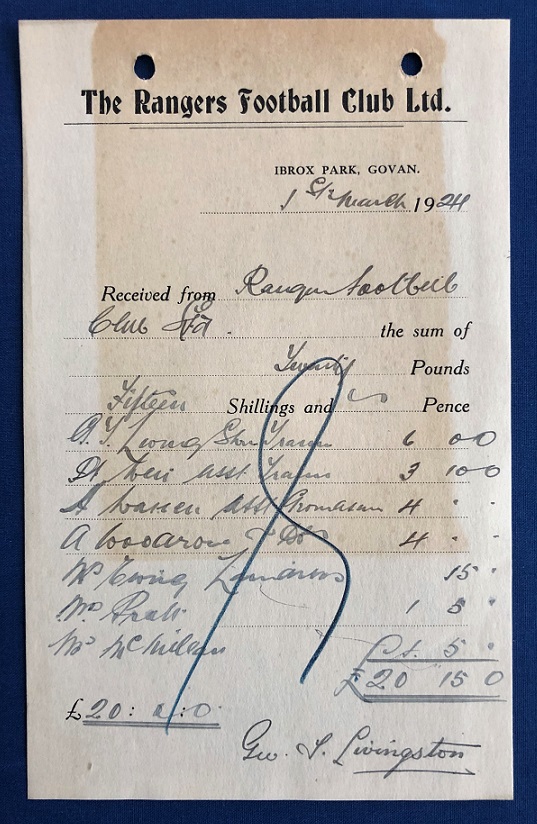 The Rangers Football Club Ltd.
IBROX PARK, GOVAN.
1st March 1924
Received from Rangers Football
Club Ltd. the sum of
Twenty Pounds
Fifteen Shillings and Pence
G. T. Livingston Trainer 6 0 0
Dr asst Trainer 3 10 0
A asst 4 " "
A Woodrow Do 4 " "
Mrs Ewing 15 "
Mrs Pratt 1 5 "
Mrs McMillan £1. 5 "
£20 15 0
£20: : 0
Geo. T. Livingston